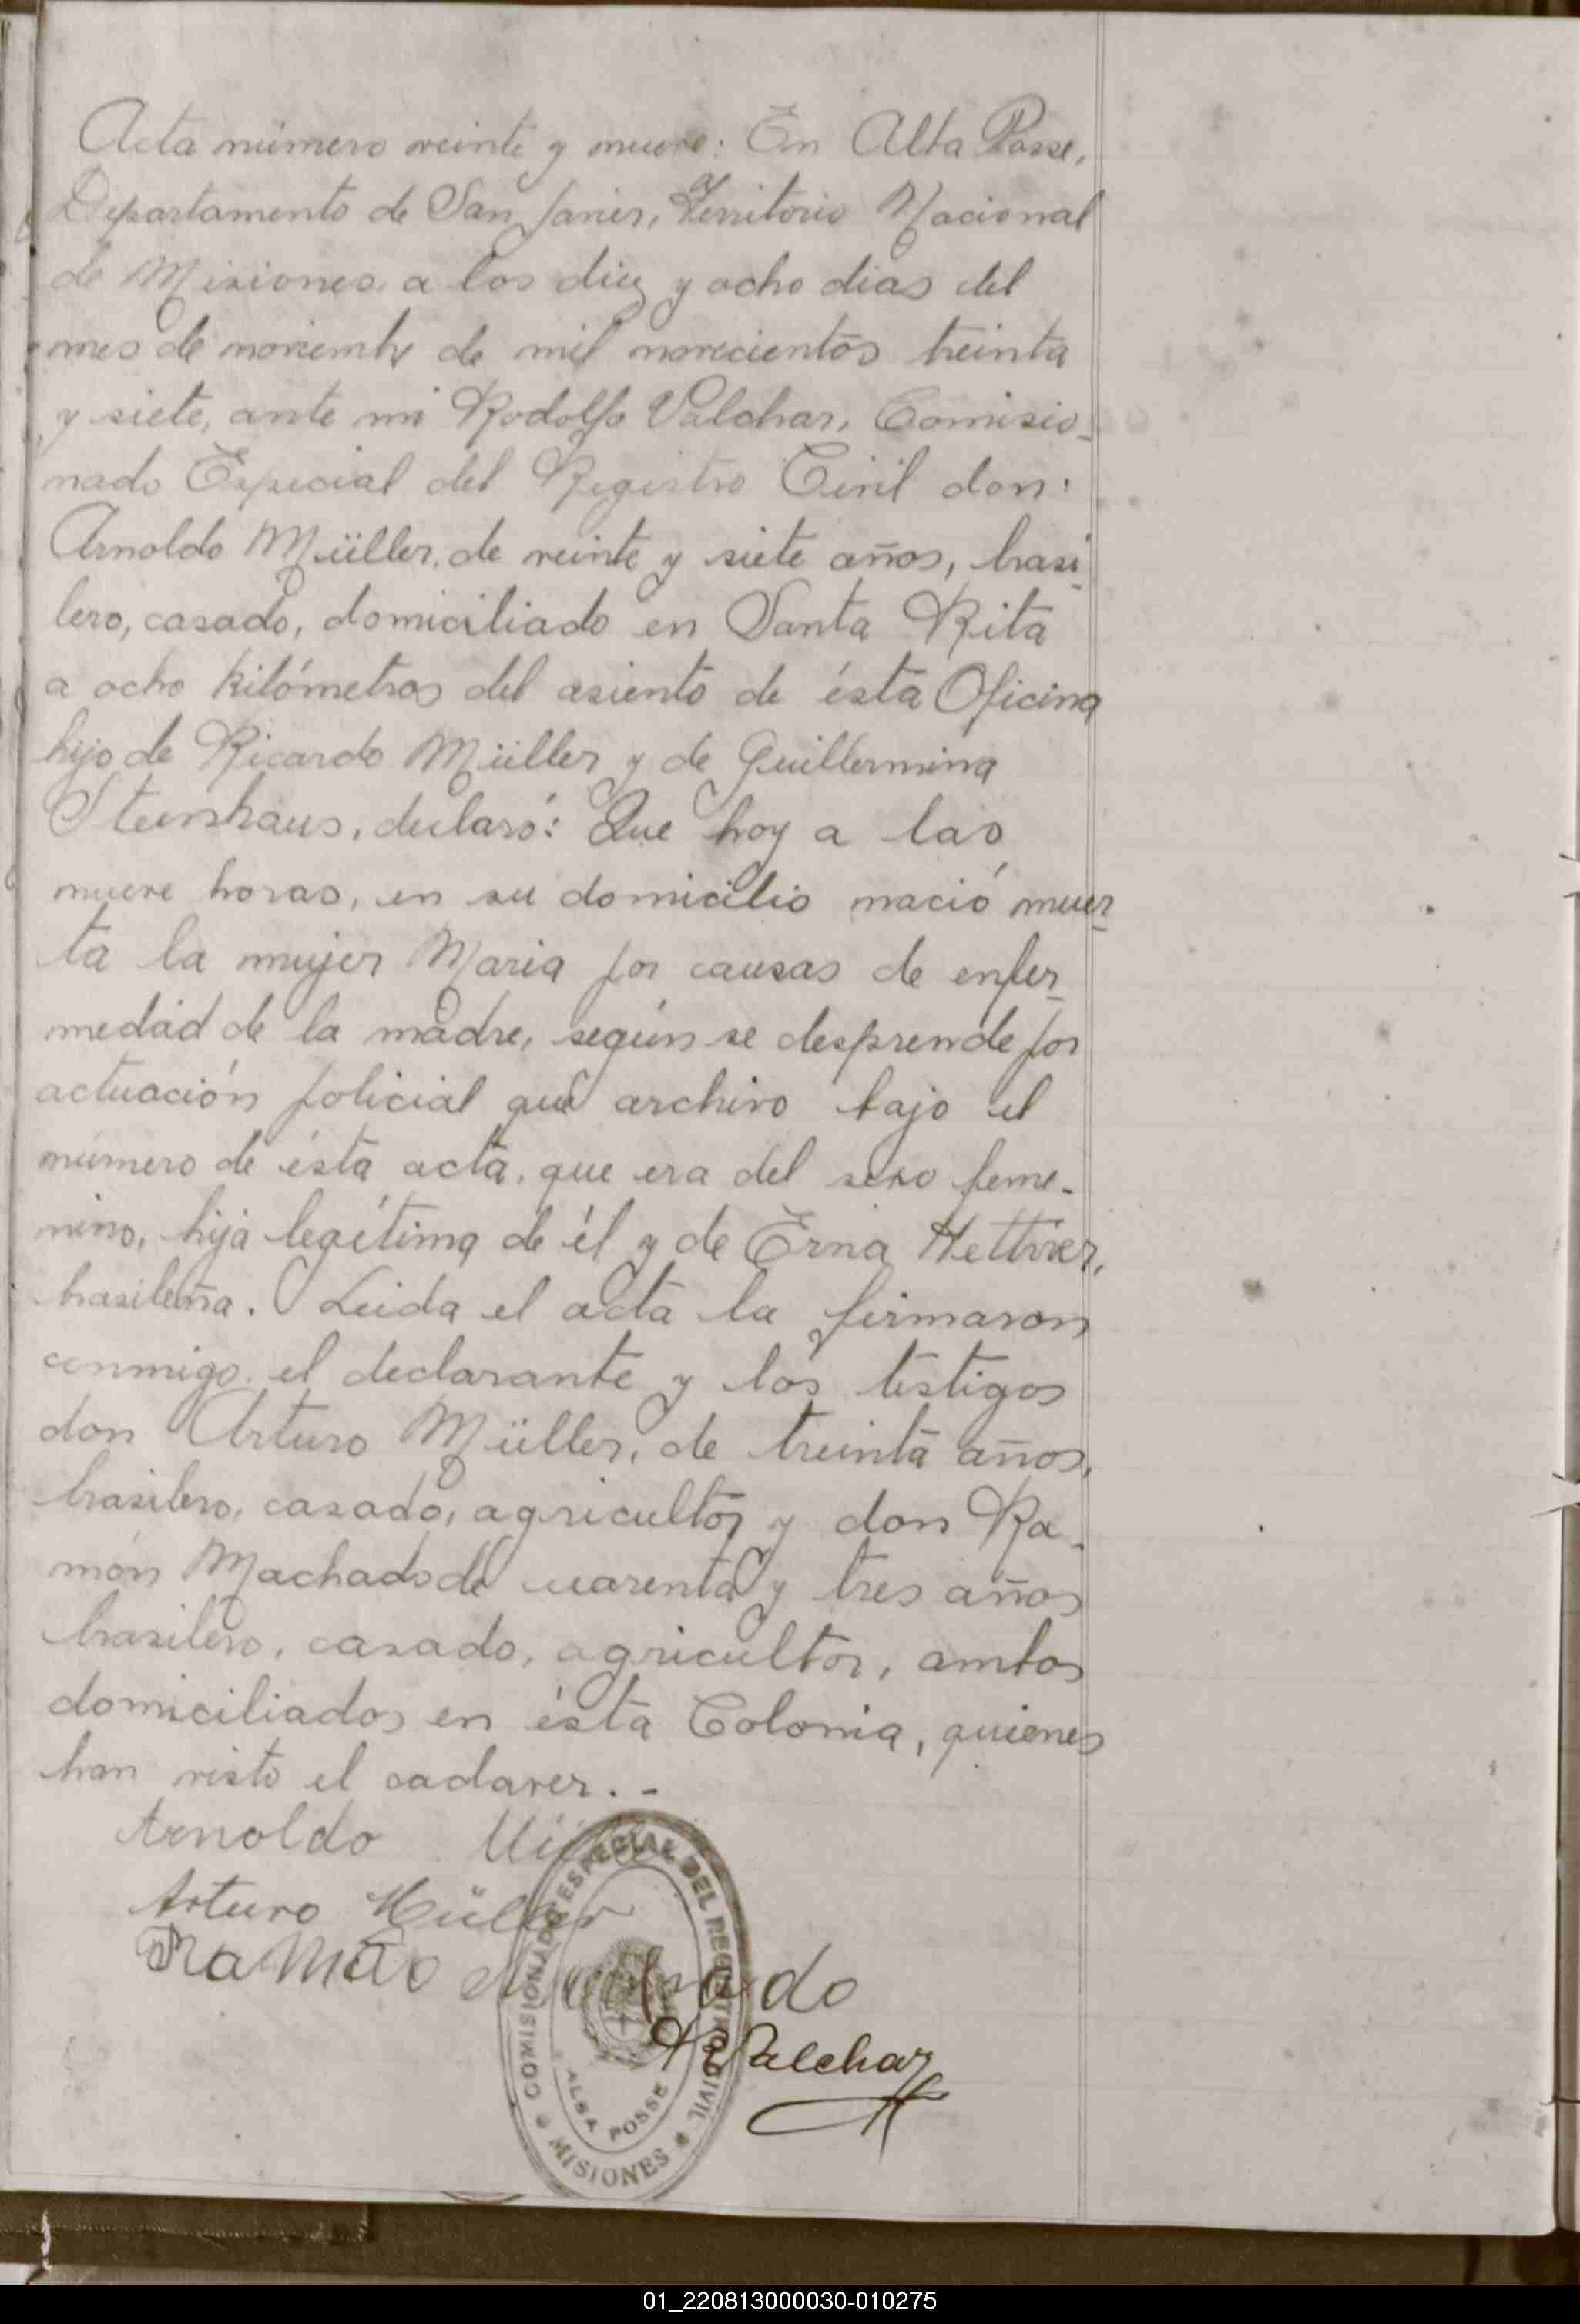 Acta número veinte y nueve: En Alba Posse,
Departamento de San Javier, Territorio Nacional
de Misiones a los diez y ocho dias del
mes de noviembre de mil novecientos treinta
y siete, ante mi Rodolfo Valchar, Comisio-
nado Especial del Registro Civil don:
Arnoldo Müller, de veinte y siete años, brasi-
lero, casado, domiciliado en Santa Rita
a ocho kilómetros del asiento de ésta Oficina
hijo de Ricardo Müller y de Guillermina
Steinshaus, declaró: Que hoy a las
nueve horas, en su domicilio nació muer-
ta la mujer Maria por causas de enfer-
medad de la madre, según se desprende por
actuación policial que archivo bajo el
número de ésta acta, que era del sexo feme-
nino, hija legítima de él y de Erna
brasileña. Leida el acta la firmaron
conmigo el declarante y los testigos
don Arturo Müller, de treinta años,
brasilero, casado, agricultor y don Ra-
món Machado de cuarenta y tres años
brasilero, casado, agricultor, ambos
domiciliados en ésta Colonia, quienes
han visto el cadaver. -
Arnoldo Müller
Arturo Müller
Ramão Machado
R Valchar
COMISIONADO ESPECIAL DEL REGISTRO CIVIL
ALBA POSSE
MISIONES
01_220813000030-010275